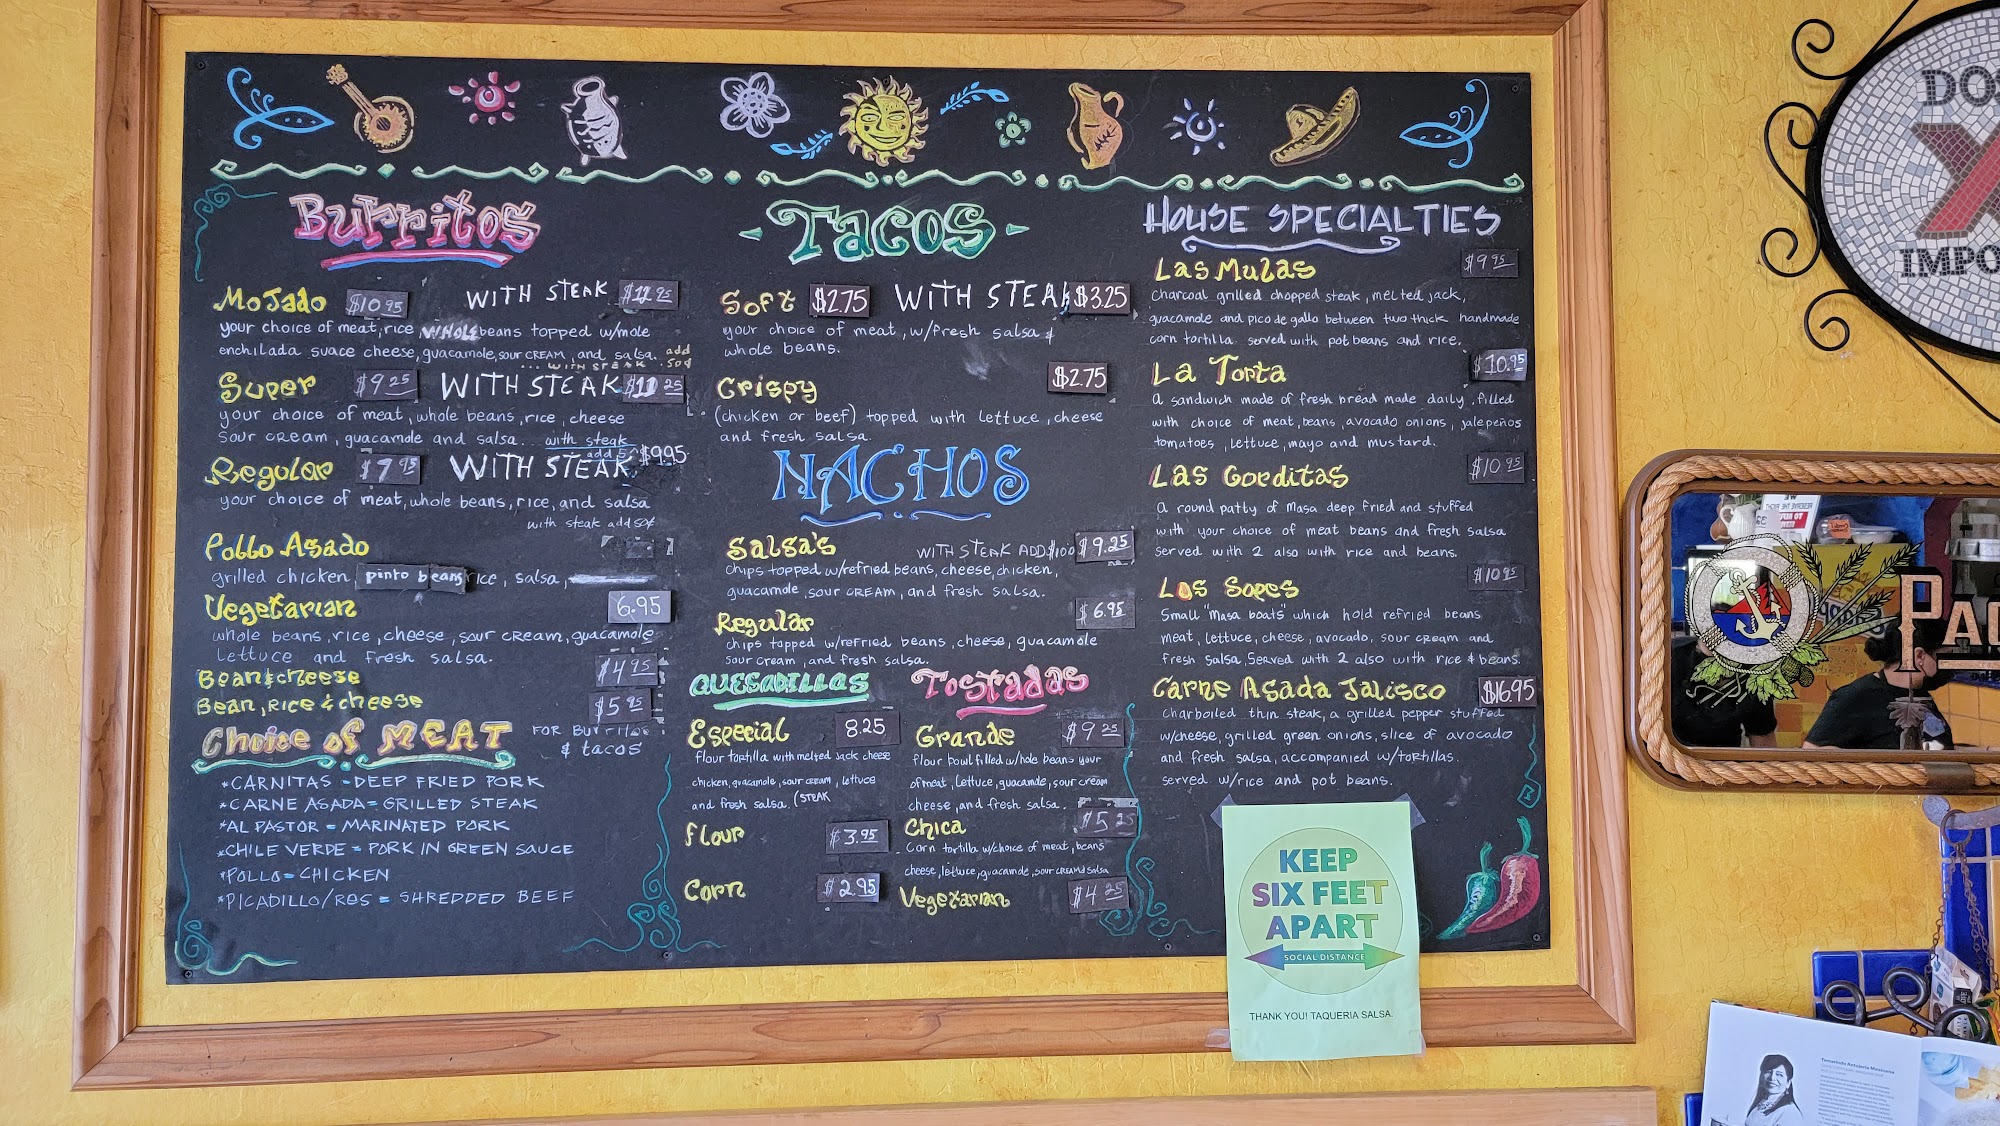 Burritos
Mojado $10.95 WITH STEAK $12.95
your choice of meat, rice, WHOLE beans topped w/mole
enchilada suace cheese, guacamole, sour CREAM, and salsa. add
... WITH STEAK .50¢
Super $9.25 WITH STEAK $11.25
your choice of meat, whole beans, rice, cheese
sour cream, guacamole and salsa. with steak
add
Regular $7.95 WITH STEAK $9.95
your choice of meat, whole beans, rice, and salsa
with steak add 50¢
Pollo Asado
grilled chicken, pinto beans rice, salsa,
Vegetarian 6.95
whole beans, rice, cheese, sour cream, guacamole
Lettuce and fresh salsa.
Bean & cheese $4.95
Bean, Rice & cheese $5.95
Choice of MEAT FOR BURRITOS
& tacos
*CARNITAS = DEEP FRIED PORK
*CARNE ASADA = GRILLED STEAK
*AL PASTOR = MARINATED PORK
*CHILE VERDE = PORK IN GREEN SAUCE
*POLLO = CHICKEN
*PICADILLO/RES = SHREDDED BEEF
- Tacos -
Soft $2.75 WITH STEAK $3.25
your choice of meat, w/fresh salsa &
whole beans.
Crispy $2.75
(chicken or beef) topped with lettuce, cheese
and fresh salsa.
NACHOS
Salsa's WITH STEAK ADD $1.00 $9.25
chips topped w/refried beans, cheese, chicken,
guacamole, sour CREAM, and fresh salsa.
Regular $6.95
chips topped w/refried beans, cheese, guacamole
sour cream, and fresh salsa.
QUESADILLAS
Especial 8.25
flour tortilla with melted Jack cheese
chicken, guacamole, sour cream, lettuce
and fresh salsa. (STEAK
Flour $3.95
Corn $2.95
Tostadas
Grande $9.25
flour bowl filled w/whole beans your
of meat, lettuce, guacamole, sour cream
cheese, and fresh salsa.
Chica $5.25
Corn tortilla w/choice of meat, beans
cheese, lettuce, guacamole, sour cream & salsa
Vegetarian $4.25
HOUSE SPECIALTIES
Las Mulas $9.95
Charcoal grilled chopped steak, melted jack,
guacamole and pico de gallo between two thick handmade
corn tortilla served with pot beans and rice.
La Torta $10.95
a sandwich made of fresh bread made daily, filled
with choice of meat, beans, avocado onions, jalepeños
tomatoes, lettuce, mayo and mustard.
Las Gorditas $10.95
a round patty of Masa deep fried and stuffed
with your choice of meat beans and fresh salsa
served with 2 also with rice and beans.
Los Sopes $10.95
Small "masa boats" which hold refried beans
meat, lettuce, cheese, avocado, sour cream and
fresh salsa, Served with 2 also with rice & beans.
Carne Asada Jalisco $16.95
charboiled thin steak, a grilled pepper stuffed
w/cheese, grilled green onions, slice of avocado
and fresh salsa, accompanied w/tortillas.
served w/rice and pot beans.
KEEP
SIX FEET
APART
SOCIAL DISTANCE
THANK YOU! TAQUERIA SALSA.
DO
X
IMPO
PAC